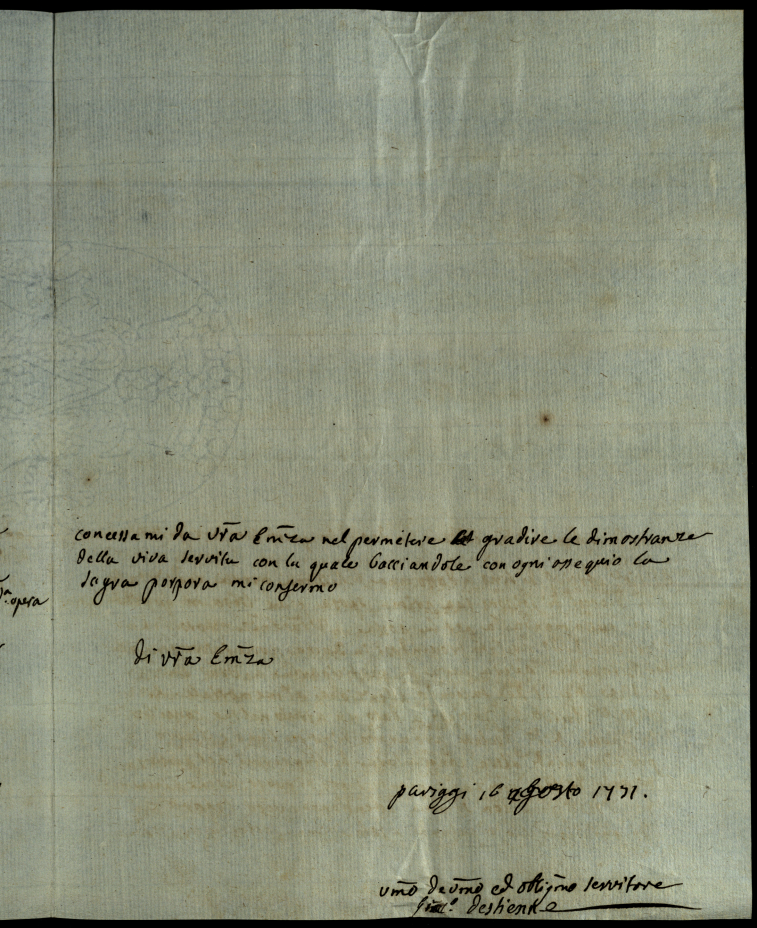 opera
concessami da Vrã Emz̃a nel permetere gradire le dimostranze
della viva servitu con la quale bacciandole con ogni ossequio la
sagra porpora mi confermo
di vrã Emz̃a
pariggi 16 agosto 1731.
umõ devmõ ed obligmõ servitore